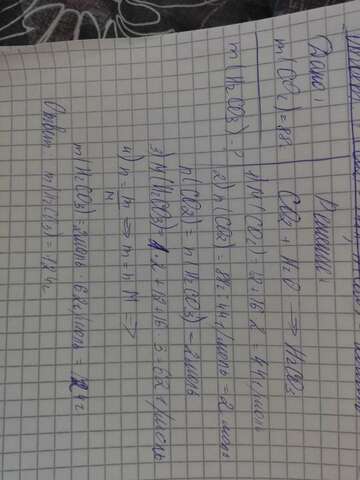 Дано:
m(CO₂)=88г
m(H₂CO₃)-?
Решение:
CO₂ + H₂O → H₂CO₃
1) M(CO₂)=12+16·2=44г/моль
2) n(CO₂)=88г:44г/моль=2 моль
n(CO₂)=n(H₂CO₃)=2моль
3) M(H₂CO₃)=1·2+12+16·3=62г/моль
4) n=m/M ⇔ m=n·M ⇒
m(H₂CO₃)=2моль·62г/моль=124г
Ответ: m(H₂CO₃)=124г.